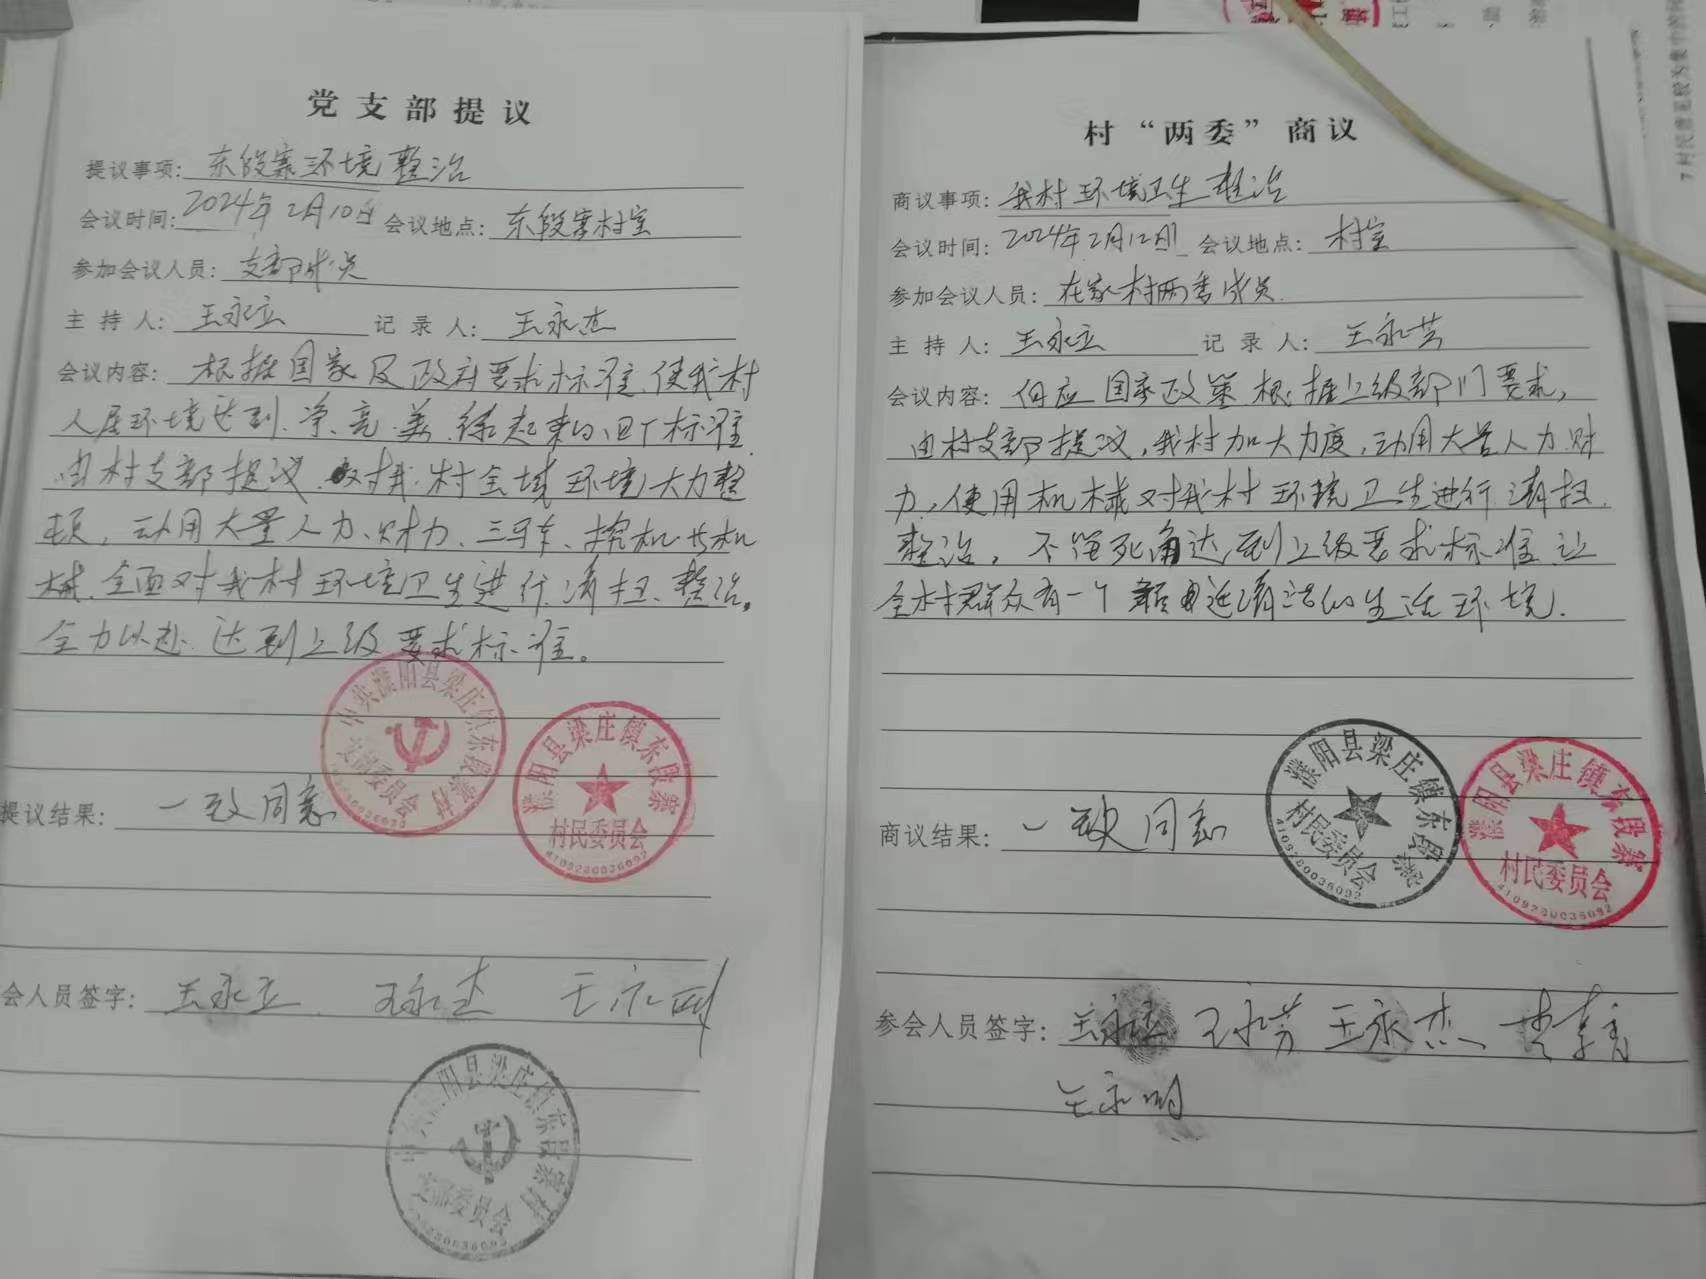 党支部提议
提议事项: 东段寨环境整治
会议时间: 2024年2月10日 会议地点: 东段寨村室
参加会议人员: 支部成员
主持人: 王永立 记录人: 王永杰
会议内容: 根据国家及政府要求标准,使我村
人居环境达到.净.亮.美.绿起来的四个标准
由村支部提议.对我村全域环境大力整
顿,动用大量人力、财力、三马车、挖机等机
械.全面对我村环境卫生进行清扫、整治。
全力以赴.达到上级要求标准。
中共濮阳县梁庄镇东段寨村
支部委员会
濮阳县梁庄镇东段寨
村民委员会
4109280036092
提议结果: 一致同意
会人员签字: 王永立 王永杰 王永明
阳县梁庄镇东段寨村
支部委员会
村“两委”商议
商议事项: 我村环境卫生整治
会议时间: 2024年2月12日 会议地点: 村室
参加会议人员: 在家村两委成员
主持人: 王永立 记录人: 王永芳
会议内容: 国家政策.根据上级部门要求,
由村支部提议,我村加大力度,动用大量人力.财
力,使用机械对我村环境卫生进行清扫.
整治,不留死角达到上级要求标准.让
全村群众有一个清洁的生活环境.
濮阳县梁庄镇东段寨
村民委员会
4109280036092
濮阳县梁庄镇东段寨
村民委员会
4109280036092
商议结果: 一致同意
参会人员签字: 王永芳 王永杰
王永明